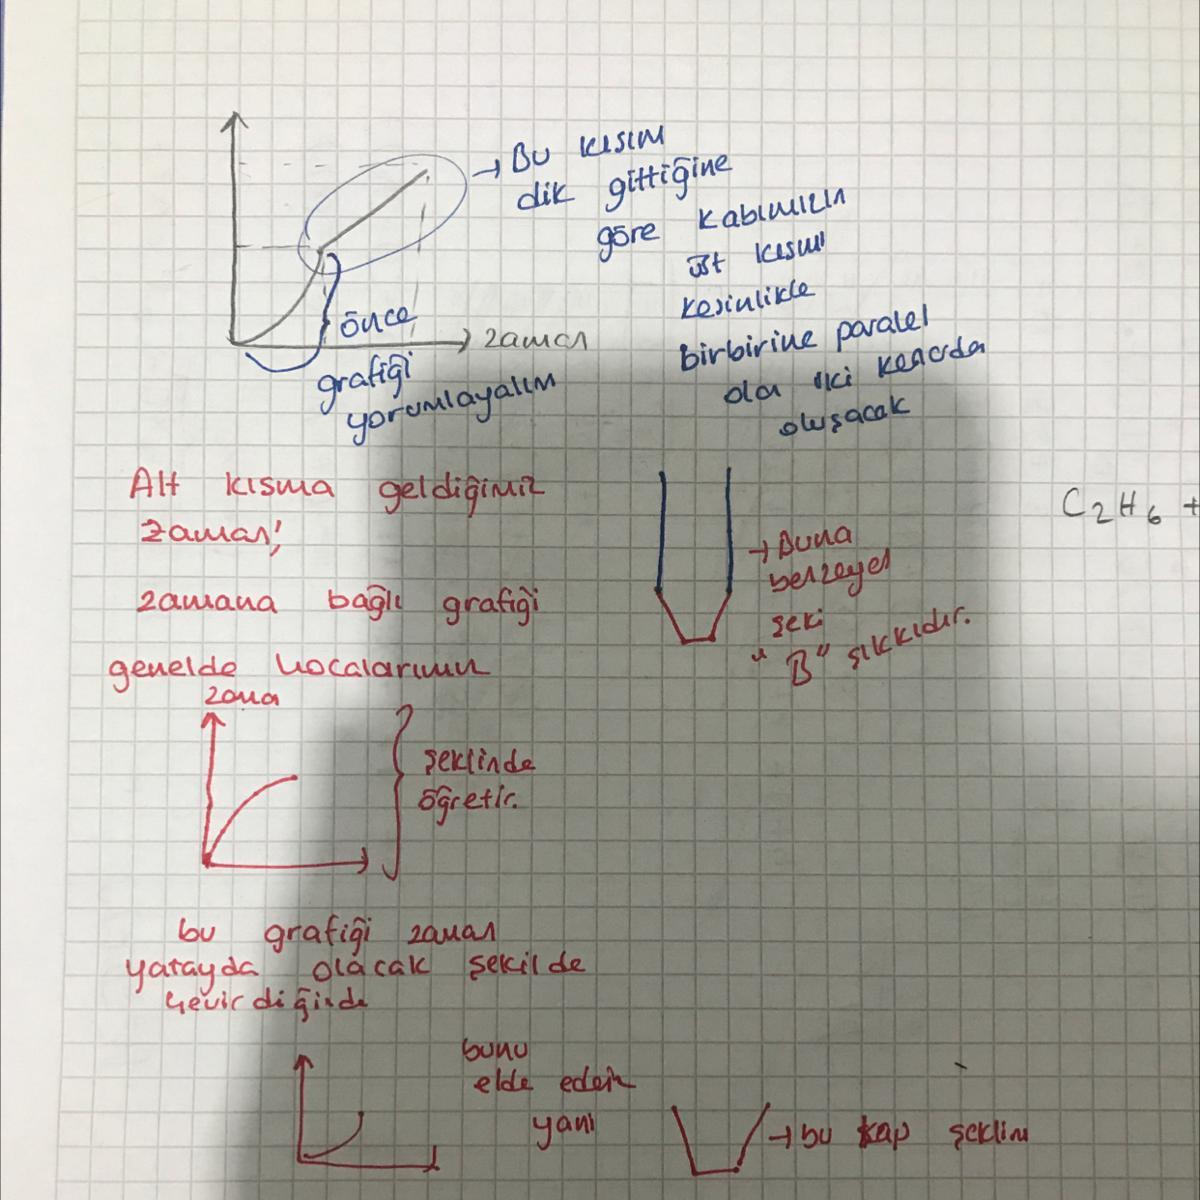 → Bu kısım
dik gittiğine
göre kabımızın
üst kısmı
kesinlikle
birbirine paralel
olan iki kenarda
oluşacak
zaman
önce
grafiği
yorumlayalım
Alt kısma geldiğimiz
zaman;
zamana bağlı grafiği
genelde hocalarımız
→ Buna
benzeyen
şeki
"B" şıkkıdır.
C2H6 +
şeklinde
öğretir.
bu grafiği zaman
yatayda olacak şekilde
çevirdiğinde
bunu
elde eder
yani
→ bu kap şeklini